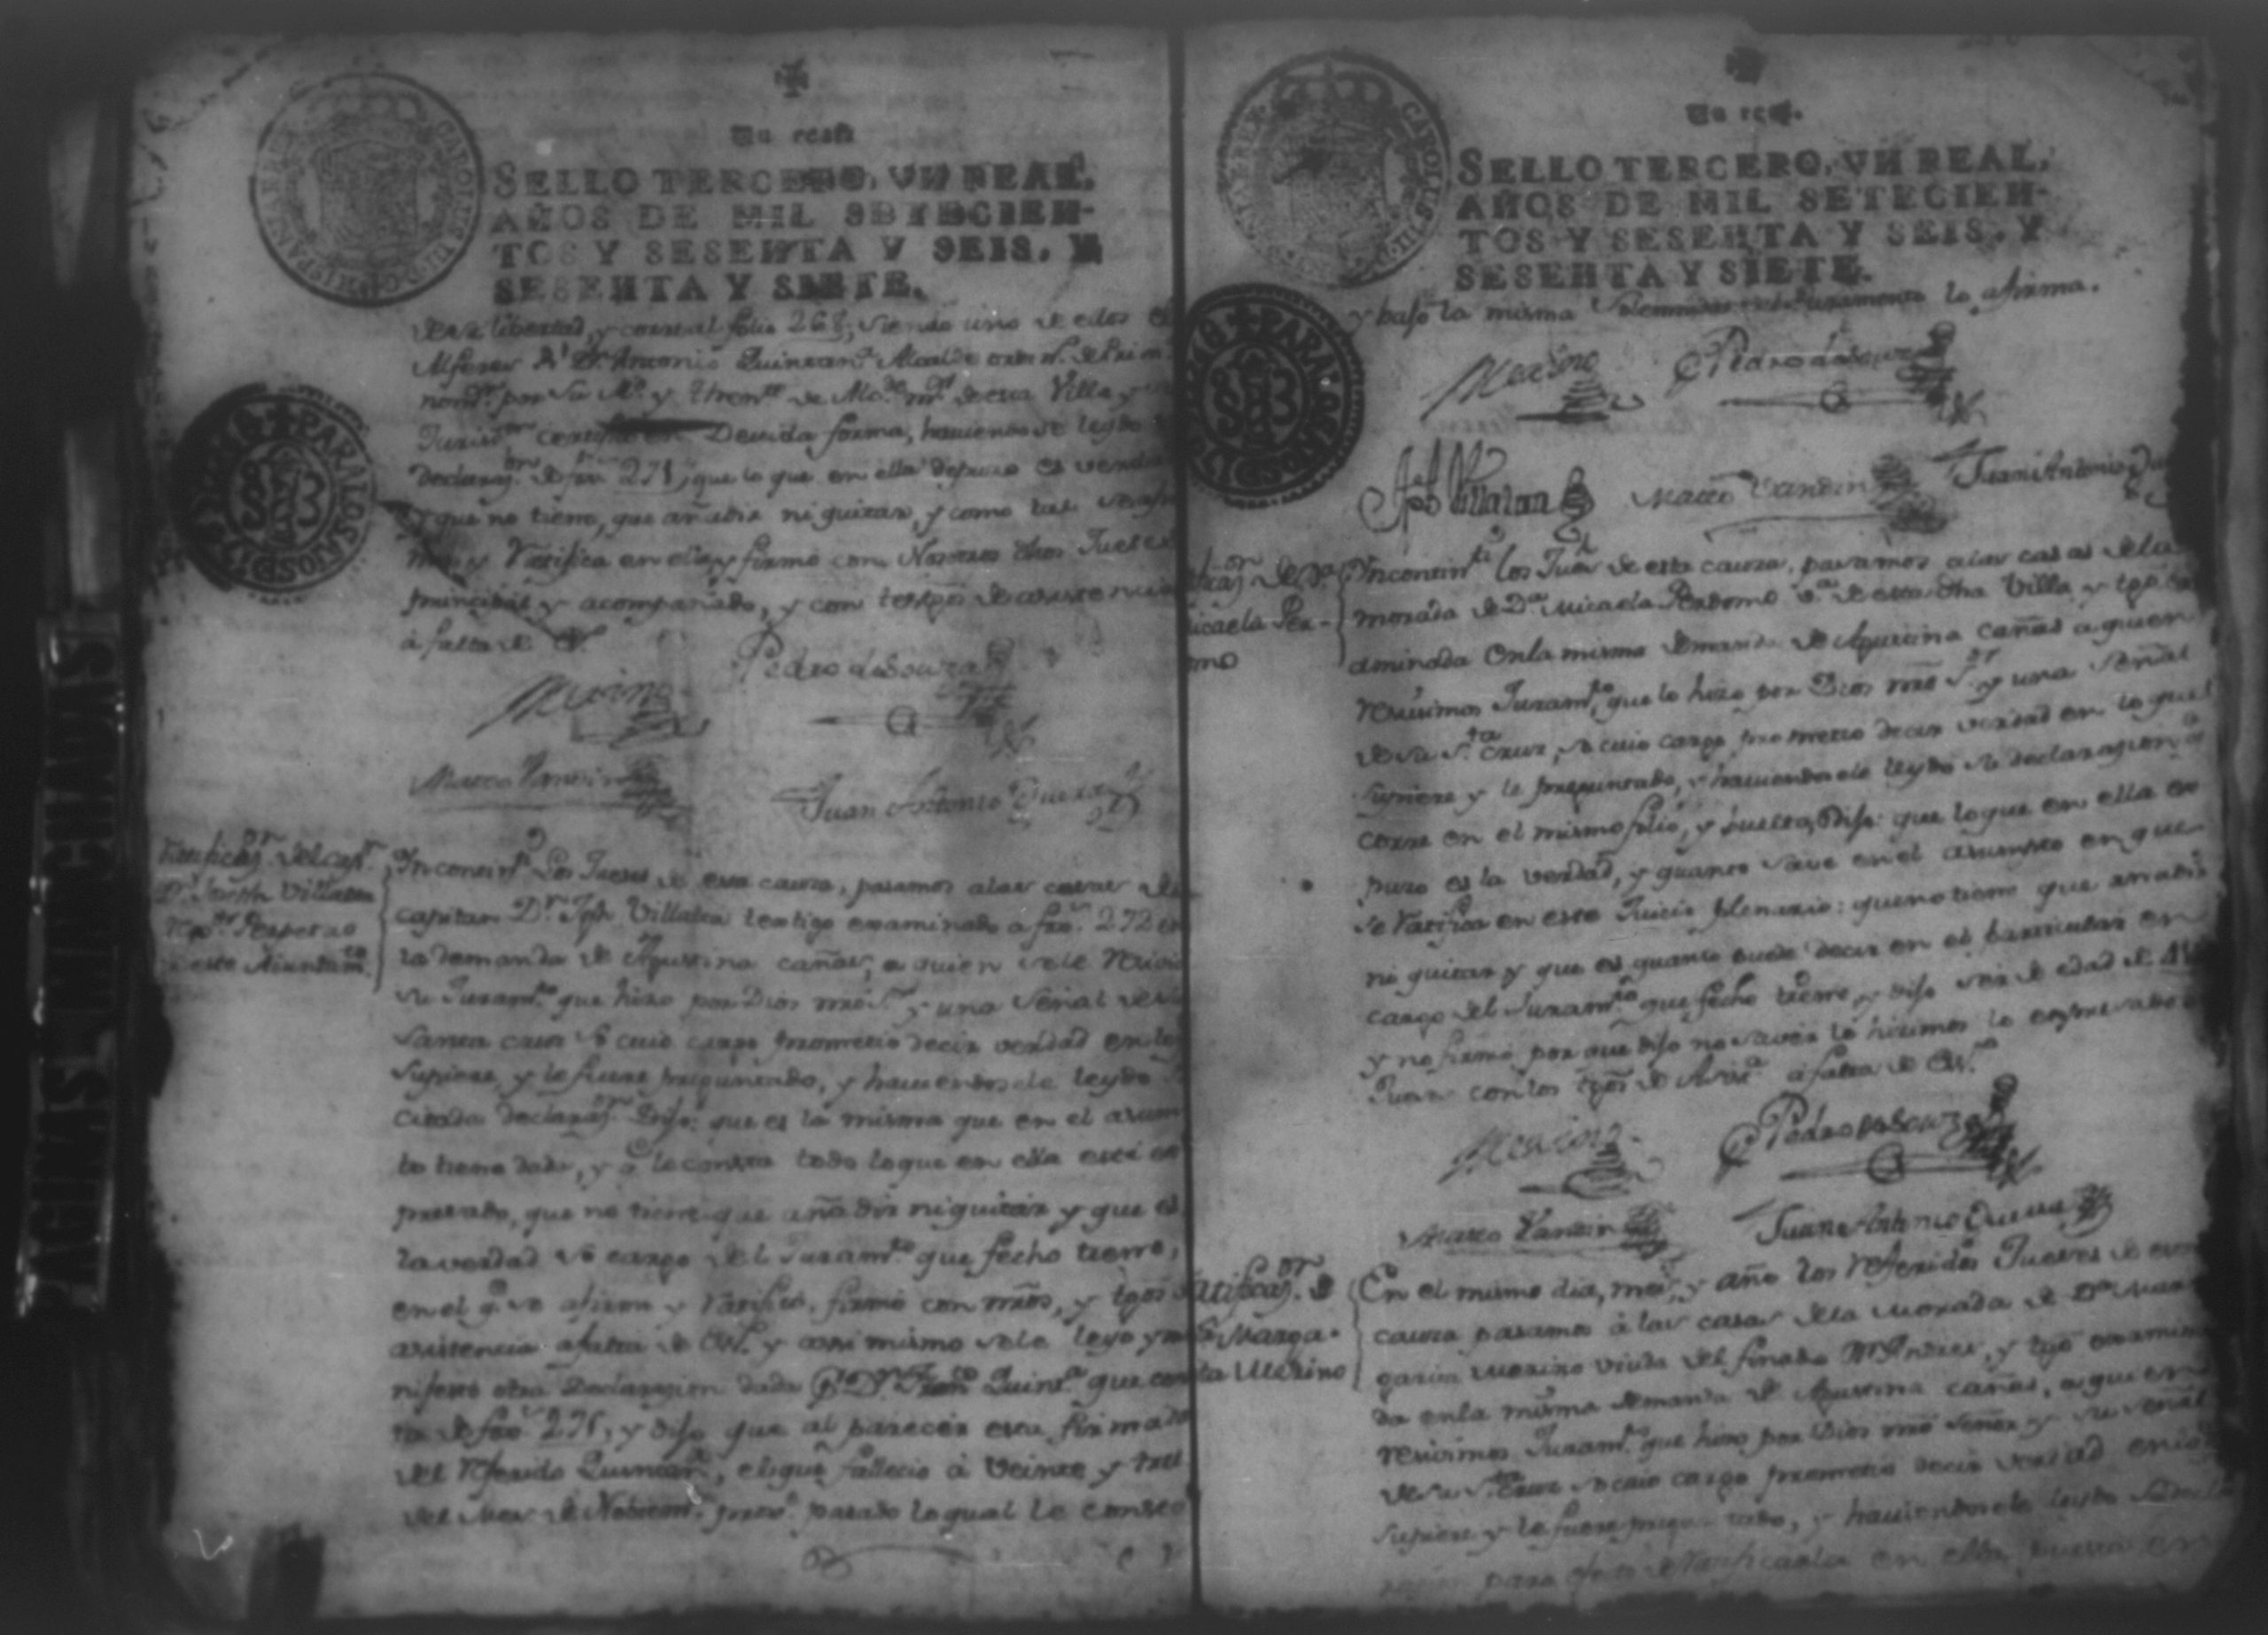 Un real
SELLO TERCERO, VN REAL,
AÑOS DE MIL SETECIEN-
TOS Y SESENTA Y SEIS, Y
SESENTA Y SIETE.
CAROLUS III D G HISPANIAR REX
PARA LOS AÑOS D
de su libertad, y corre al folio 268, siendo uno de ellos el
Alferez Rl Dn Antonio Quintana Alcalde ordino de Prim
nomdo por Su Md y Thente de Alcde mr de esta Villa y
Jurisdon certifica en Devida forma, haviendosele leydo
Declarazon de fxa 271, que lo que en ella depuso es verdad
y que no tiene, que añadir ni quitar, y como tal se afir
ma y Ratifica en ella y firmó con Nosotros dhos Jueces
principal y acompañado, y con testigos de asistencia
à falta de
Merino Pedro de Souza
Marco Vandin Juan Antonio Guerra
Ratificazon del Capn
Dn Joseph Villalva
Rexor Perpetuo
de este Aiuntamto
Yncontinti Los Jueses de esta causa, pasamos a las casas del
capitan Dn Jph Villalva testigo examinado a fxa 272 en
la demanda de Agustina cañas, a quien se le recivio
su Juramto que hizo por Dios nro Sr y una Señal de su
Santa cruz so cuio cargo prometio decir verdad en lo q
Supiere y le fuere preguntado, y haviendosele leydo
citada declarazon Dijo: que es la misma que en el asum
to tiene dada, y q le consta todo lo que en ella está ex
presado, que no tiene que añadir ni quitar y que es
la verdad so cargo del Juramto que fecho tiene,
en el q se afirma y Ratifica, firmó con nos, y tgos de
asistencia a falta de y assi mismo se le leyo y ma
nifestó otra Declaracion dada Pr Dn Quinta que cons
ta de fxa 271, y dijo que al parecer esta firmada
del Referido Quintana, el que fallecio à Veinte y tres
del Mes de Noviembe proxo pasado lo qual le consta
Un real.
SELLO TERCERO, VN REAL,
AÑOS DE MIL SETECIEN-
TOS Y SESENTA Y SEIS, Y
SESENTA Y SIETE.
CAROLUS III D G HISPANIAR REX
PARA LOS AÑOS D
y bajo la misma Solemnidad del Juramento lo afirma.
Merino Pedro de Souza
Jph Villalva Marco Vandin Juan Antonio
de Da
Micaela Per-
omo
Yncontinti los Jues de esta causa, pasamos a las casas de la
morada de Da Micaela Perdomo va de esta dha Villa y tgo ex
aminada en la misma demanda de Agustina cañas a quien
recivimos Juramto que lo hizo por Dios nro Sor y una Señal
de su Sta Cruz, so cuio cargo prometio decir verdad en lo que
supiere y le preguntado, y haviendosele leydo su declaracion q
corre en el mismo folio, y buelta, Dijo: que lo que en ella ex
puso es la verdad, y quanto save en el asumpto en que
se Ratifica en este Juicio plenario: que no tiene que añadir
ni quitar y que es quanto puede decir en el particular en
cargo del Juramto que fecho tiene, y dijo ser de edad de
y no firmó por que dijo no saver lo hizimos lo expresados
Jueces con los tgos de Assia a falta de
Merino Pedro de Souza
Marco Vandin Juan Antonio Guerra
Ratificazon de
Da Marga-
rita Merino
En el mismo dia, mes, y año los Referidos Jueces de esta
causa pasamos à las casas de la morada de Da Mar
garita Merino viuda del finado Andres, y tgo examina
da en la misma demanda de Agustina cañas, a quien
recivimos Juramto que hizo por Dios nro Señor y su Señal
de su Sta Cruz so cuio cargo prometio decir verdad en lo q
supiere y le fuere preguntado, y haviendosele leydo su decla
racion para efecto de Ratificarla en ella puesta en